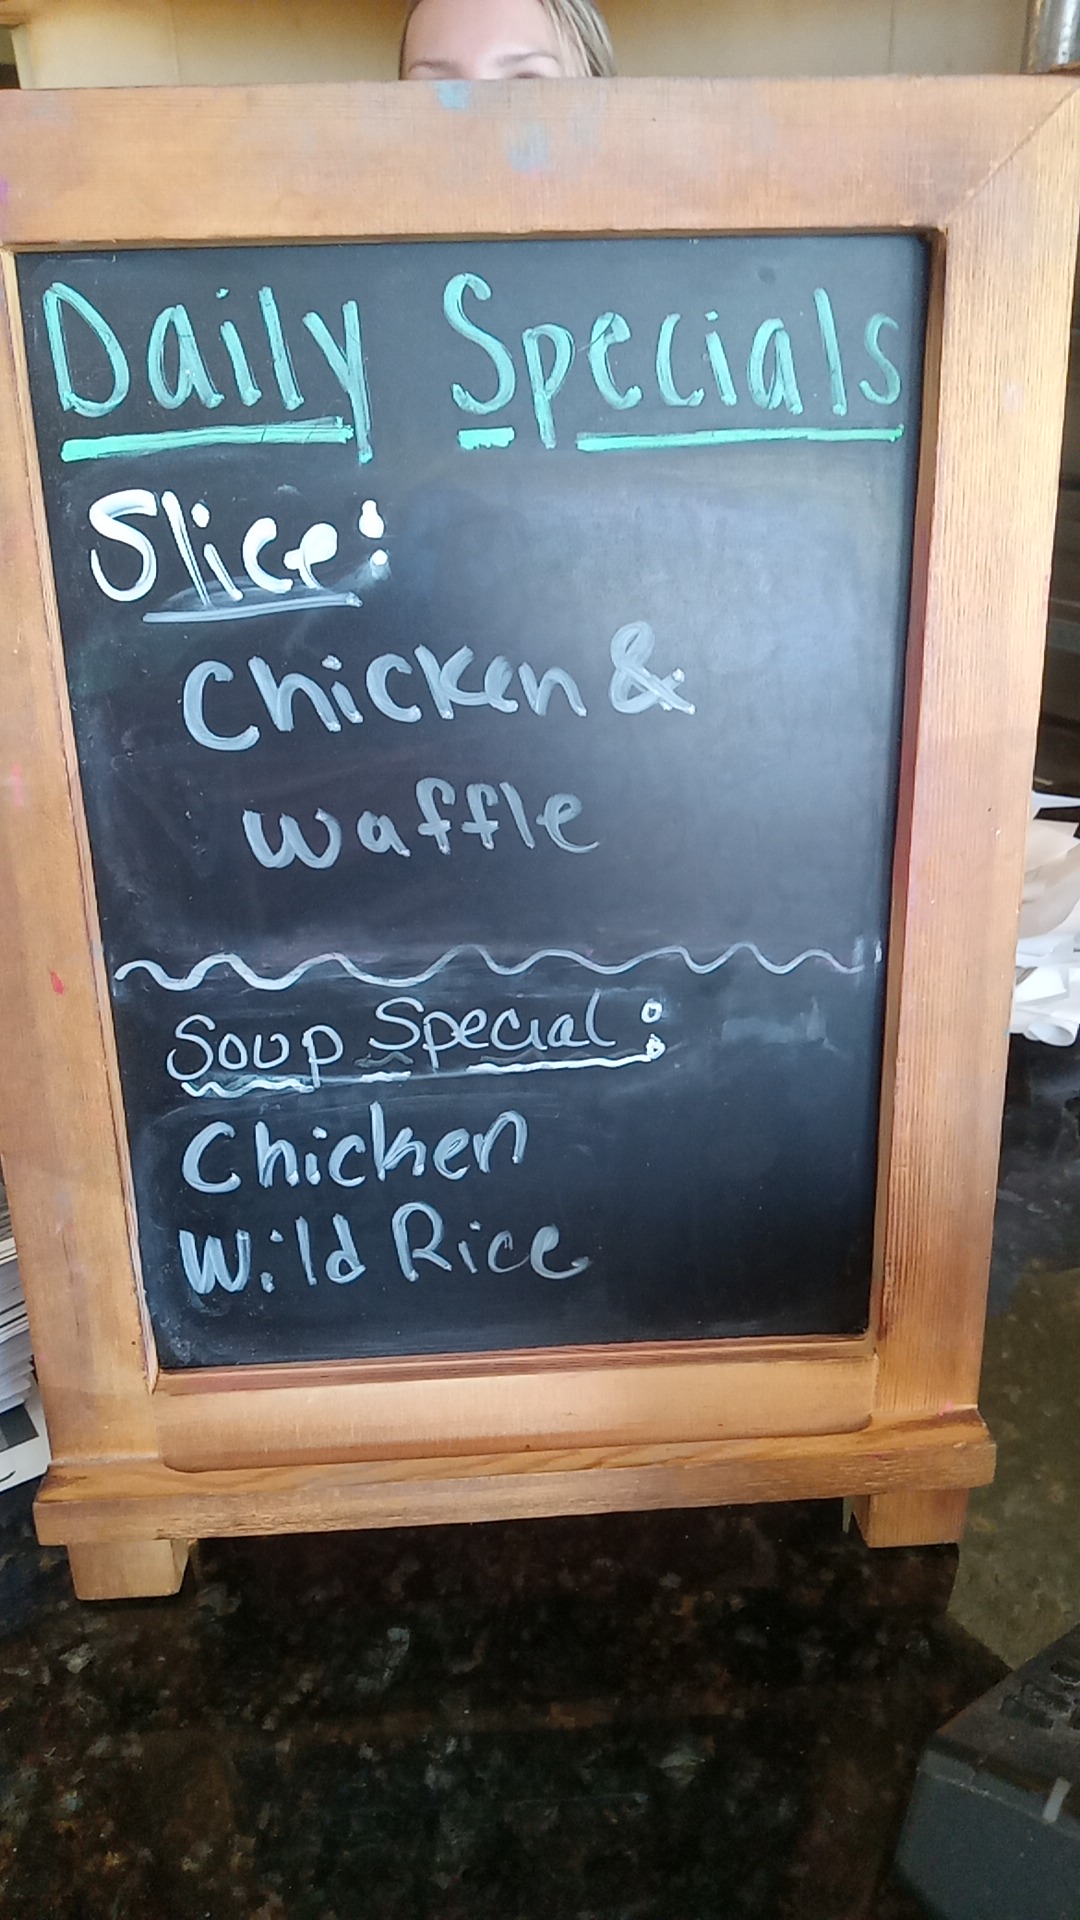 Daily Specials
Slice:
Chicken &
waffle
Soup Special:
Chicken
Wild Rice